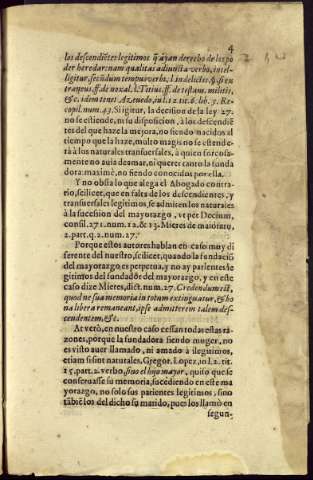 4
los descendiẽtes legitimos q̃ ayan derecho de lespo
der heredar: nam qualitas adiuncta verbo, intel-
ligitur, secũdum tempus verbi, l. in delictis. §. si ex
traneus, ff. de noxal. l. Titius, ff. de testam. militis,
&c. idem tenet Azeuedo, in l. 12. tit. 6. lib. 5. Re-
copil. num. 43. Si igitur, la decision de la ley 27.
no se estiende, ni su disposicion, à los descendiẽ
tes del que haze la mejora, no siendo nacidos al
tiempo que la haze, multo magis no se estende-
rà à los naturales transuersales, à quien forçosamente
no auia de amar, ni querer tanto la funda
dora: maximè, no siendo conocidos por ella.
Y no obsta lo que alega el Abogado contra-
rio, scilicet, que en falta de los descendientes, y
transuersales legitimos, se admiten los naturales
à la sucesion del mayorazgo, vt per Decium,
consil. 271. num. 12. & 13. Mieres de maiorat.
2. part. q. 2. num. 27.
Porque estos autores hablan en caso muy di
ferente del nuestro, scilicet, quando la fundaciõ
del mayorazgo es perpetua, y no ay parientes le
gitimos del fundador del mayorazgo, y en este
caso dize Mieres, dict. num. 27. Credendum est,
quod ne sua memoria in totum extinguatur, & bo
na libera remaneant, ipse admitterem talem des-
cendentem, &c.
At verò, en nuestro caso cessan todas estas ra
zones, porque la fundadora siendo muger, no
es visto auer llamado, ni amado à ilegitimos,
etiam si sint naturales, Gregor. Lopez, in l. 2. tit.
15. part. 2. verbo, sino el hijo mayor, quiso que se
conseruasse su memoria, sucediendo en este ma
yorazgo, no solo sus parientes legitimos, sino
tãbiẽ los del dicho su marido, pues los llamò en
segun-